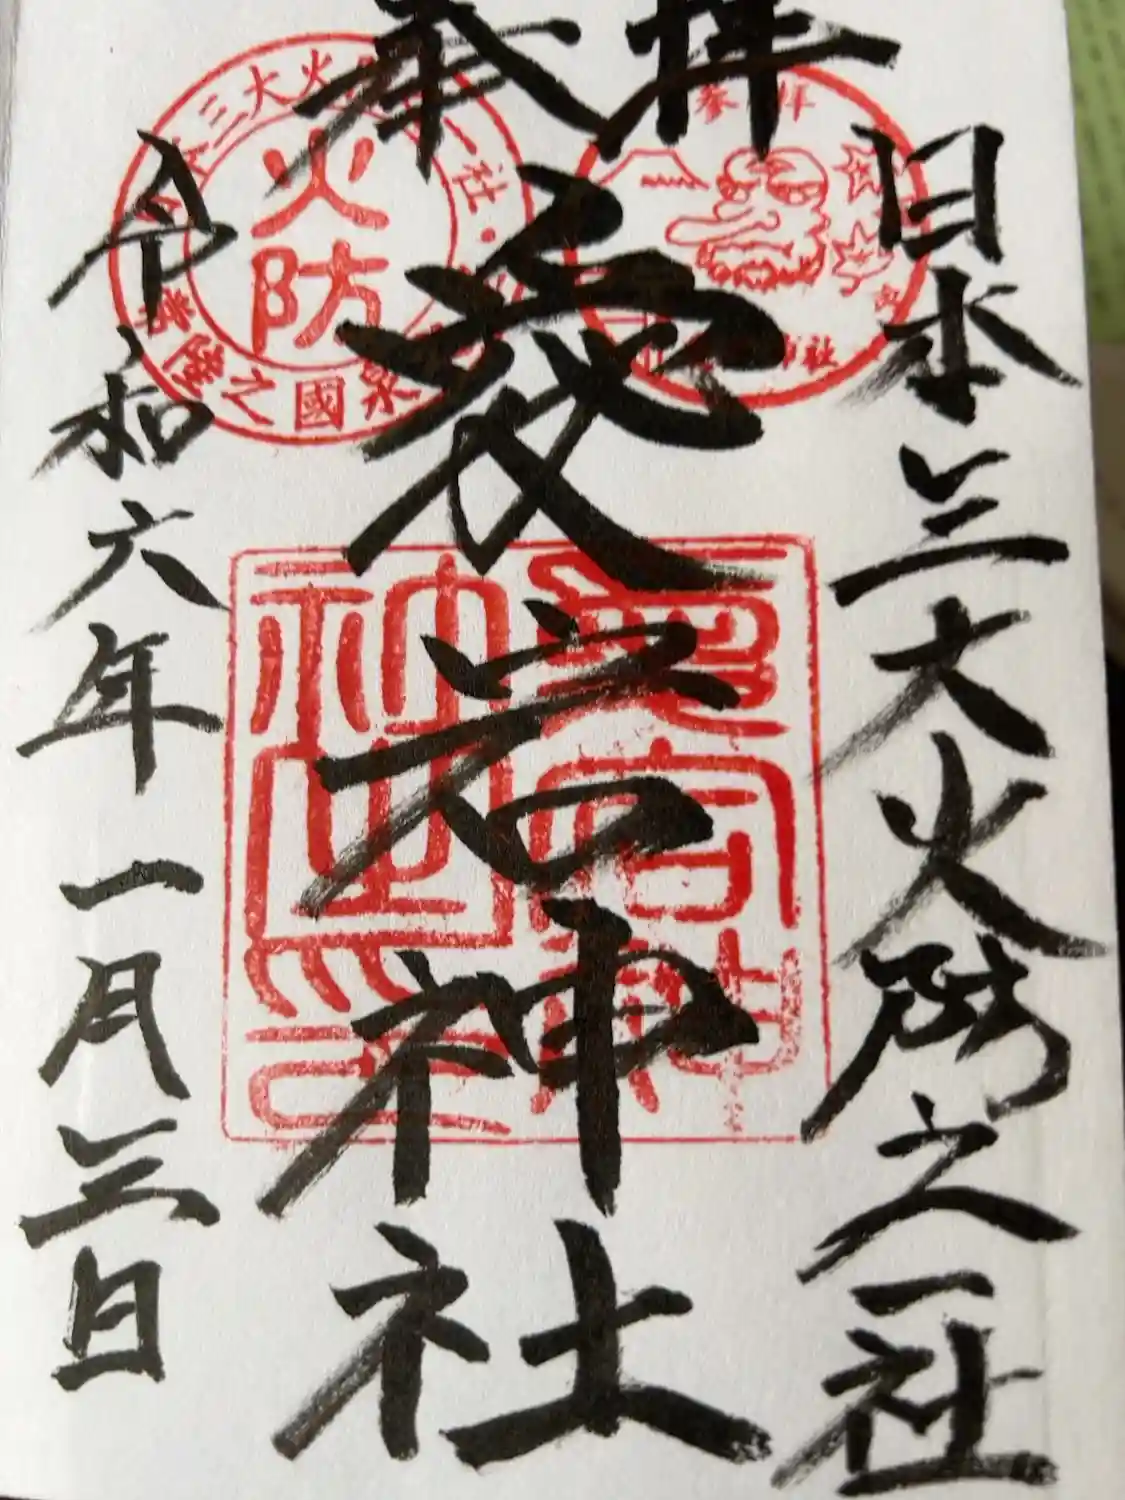 奉拝
日本三大火防之一社
愛宕神社
令和六年一月三日
火防
三大火
一社
常陸之國
参拝
神社